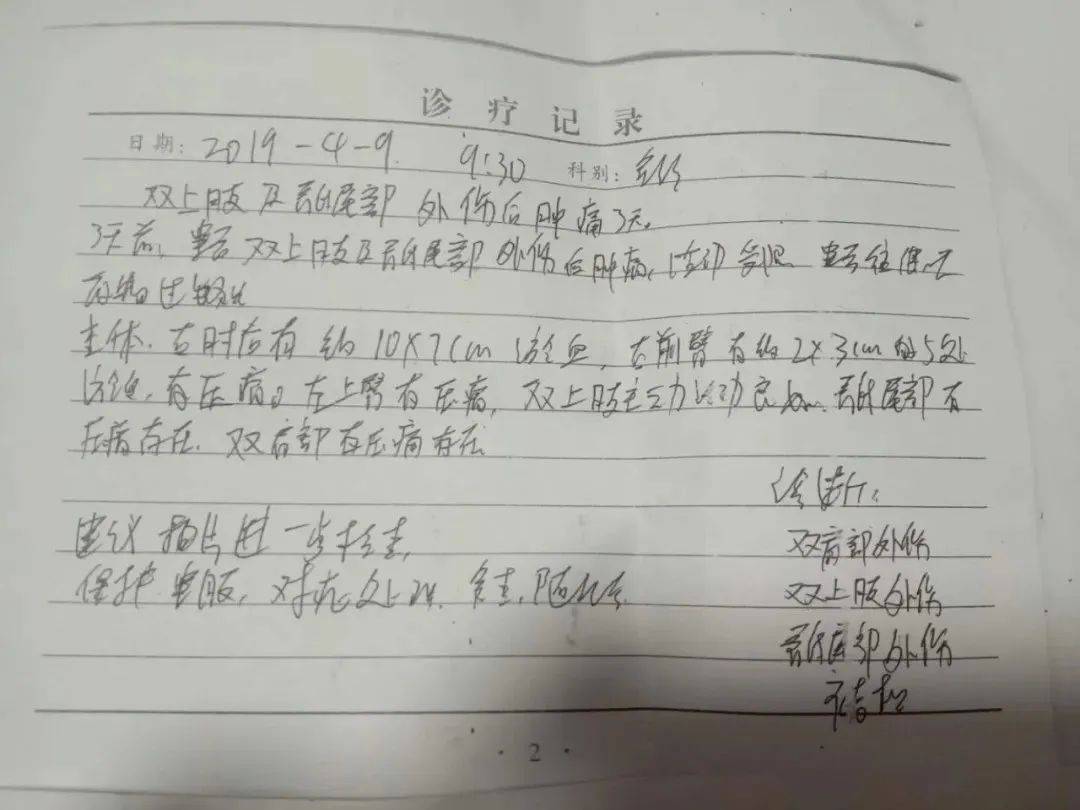 诊疗记录
日期: 2019-4-9 9:30 科别:
双上肢及骶尾部外伤后肿痛3天。
3天前, 患者双上肢及骶尾部外伤后肿痛, 活动受限
查体. 右肘后有约10×7cm淤血, 右前臂有约2×3cm的5处
淤血, 有压痛。左上臂有压痛, 双上肢主动活动良好, 骶尾部有
压痛存在. 双肩部有压痛存在
诊断:
建议拍片进一步检查,
双肩部外伤
保护患肢, 对症处理. 复查. 随诊
双上肢外伤
骶尾部外伤
· 2 ·